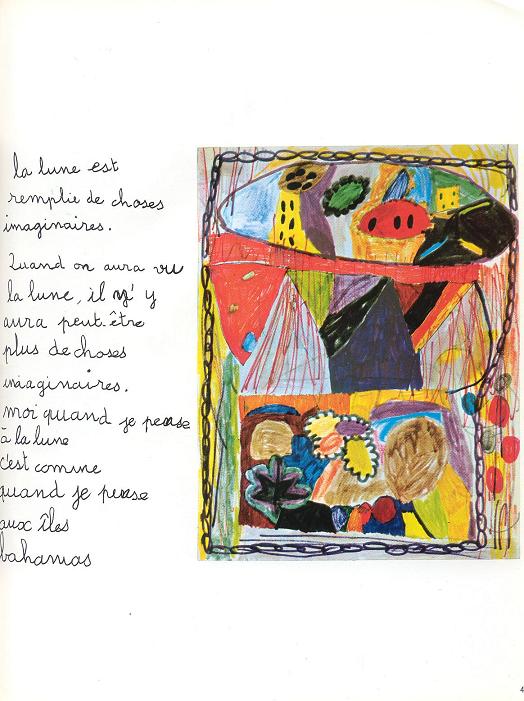 la lune est
remplie de choses
imaginaires.
Quand on aura vu
la lune, il n'y
aura peut-être
plus de choses
imaginaires.
moi quand je pense
à la lune
c'est comme
quand je pense
aux îles
bahamas
4